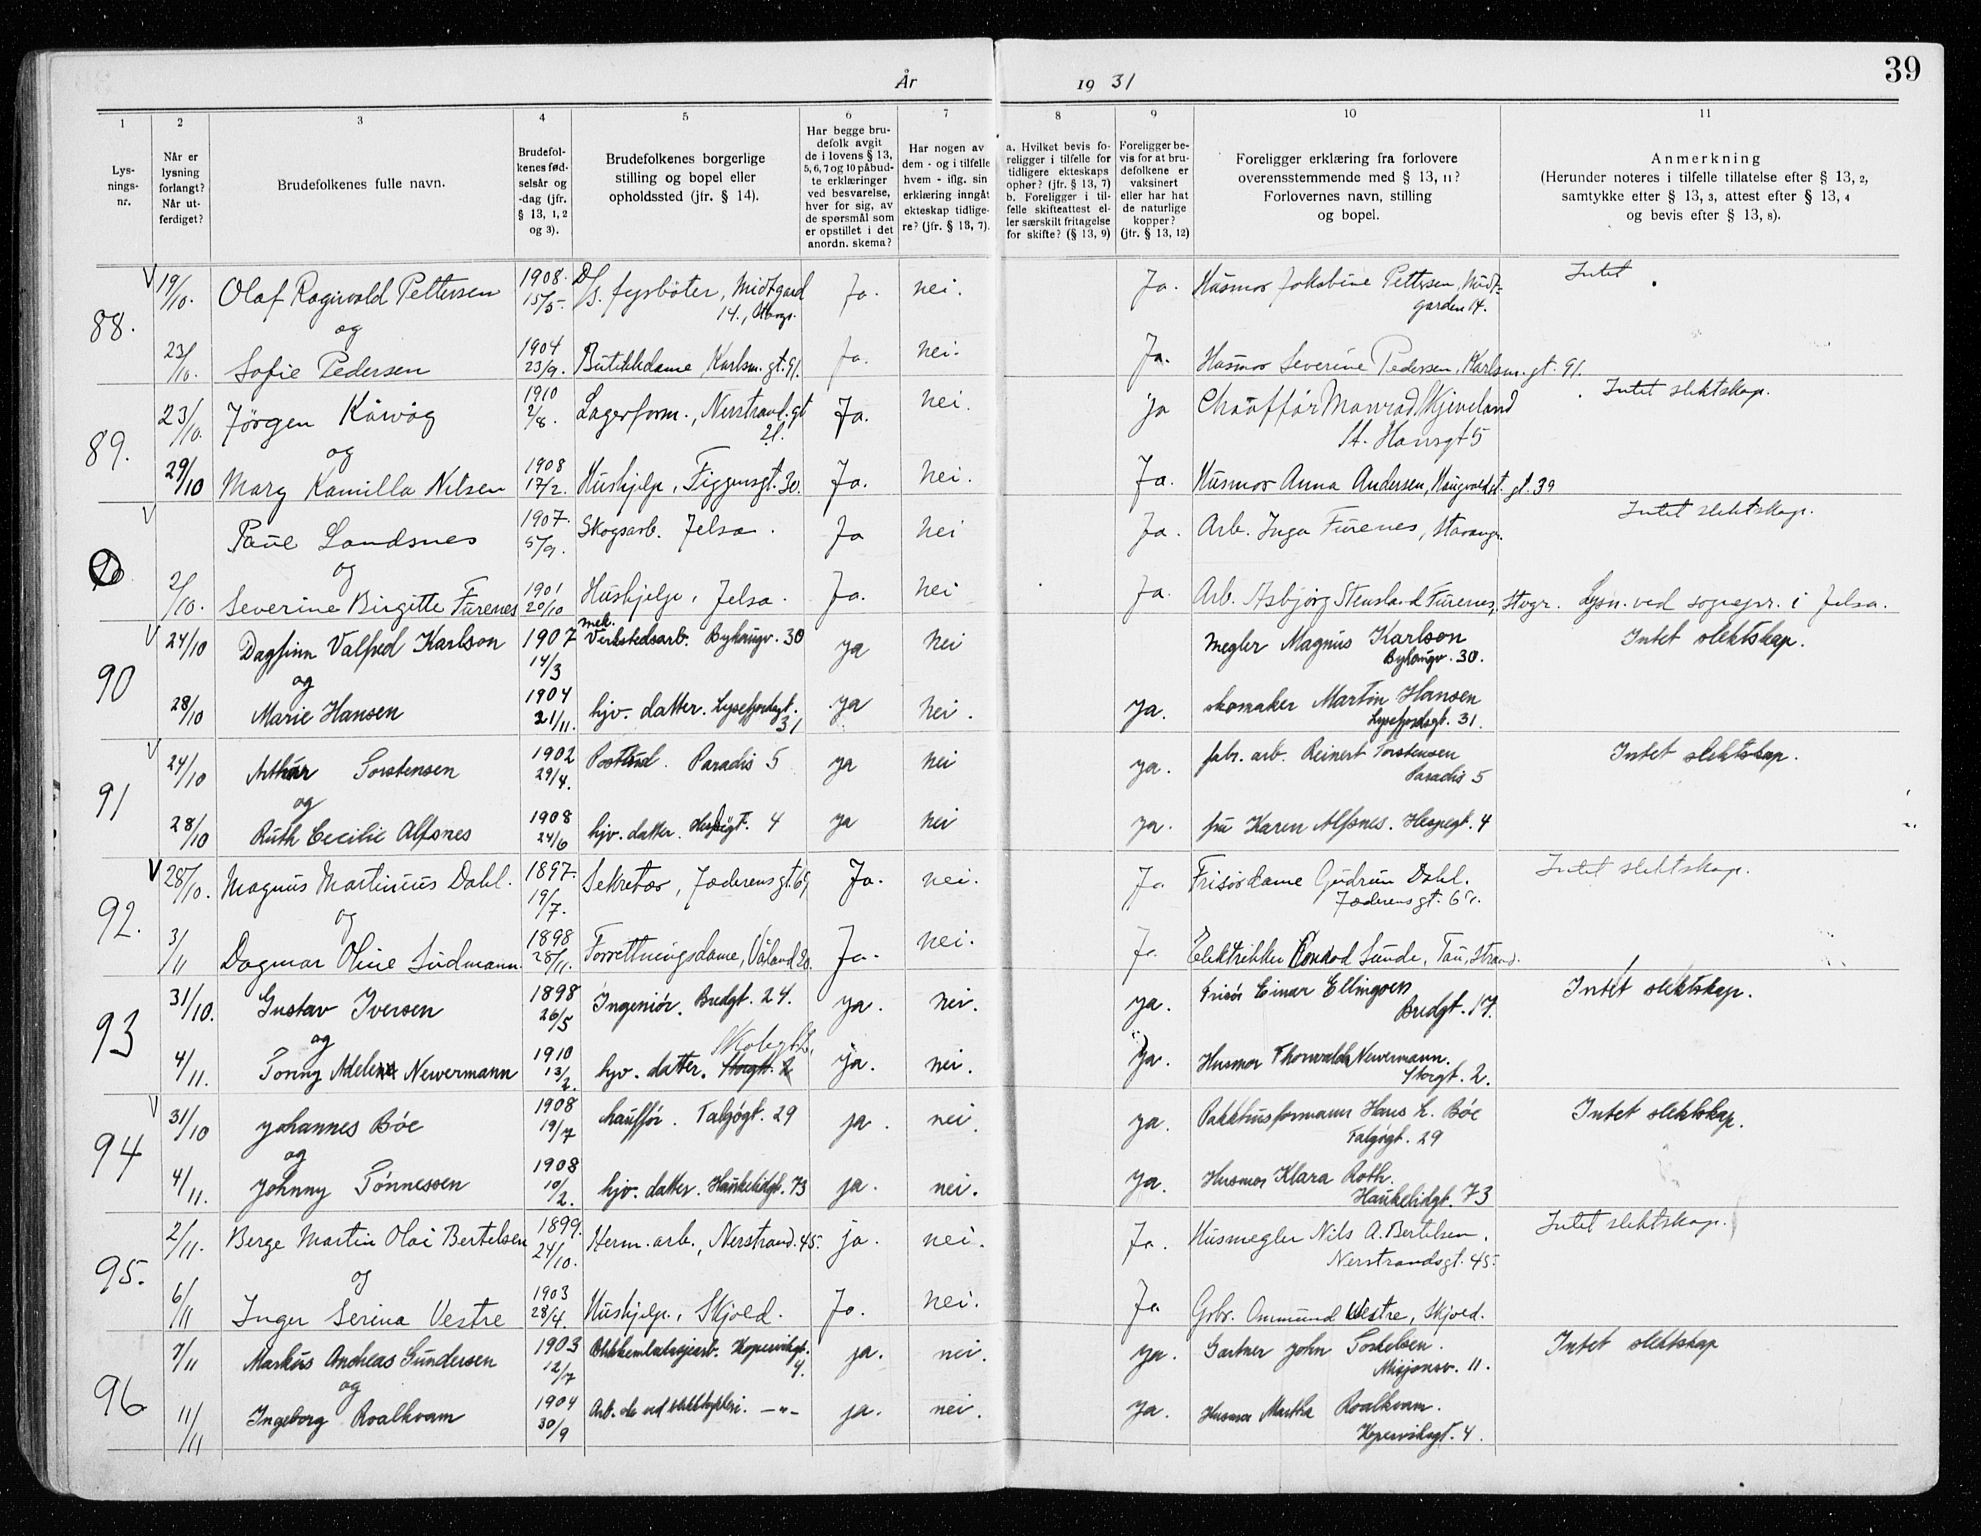 39
År 1931
1 2 3 4 5 6 7 8 9 10 11
Lys-
nings-
nr.
Når er
lysning
forlangt?
Når ut-
ferdiget?
Brudefolkenes fulle navn.
Brudefol-
kenes fød-
selsår og
-dag (jfr.
§ 13, 1, 2
og 3).
Brudefolkenes borgerlige
stilling og bopel eller
opholdssted (jfr. § 14).
Har begge bru-
defolk avgit
de i lovens § 13,
5, 6, 7 og 10 påbud-
te erklæringer
ved besvarelse,
hver for sig, av
de spørsmål som
er opstillet i det
anordn. skema?
Har nogen av
dem - og i tilfelle
hvem - iflg. sin
erklæring inngåt
ekteskap tidlige-
re? (jfr. § 13, 7).
a. Hvilket bevis fo-
religger i tilfelle for
tidligere ekteskaps
ophør? (jfr. § 13, 7)
b. Foreligger i til-
felle skifteattest el-
ler særskilt fritagelse
for skifte? (§ 13, 9)
Foreligger be-
vis for at bru-
defolkene er
vaksinert
eller har hat
de naturlige
kopper?
(jfr. § 13, 12)
Foreligger erklæring fra forlovere
overensstemmende med § 13, 11?
Forlovernes navn, stilling
og bopel.
Anmerkning
(Herunder noteres i tilfelle tillatelse efter § 13, 2,
samtykke efter § 13, 3, attest efter § 13, 4
og bevis efter § 13, 8).
88. 19/10. Olaf Ragnvald Pettersen 1908. 15/5- D/S. fyrbøter, Midtgard 14., Ja. nei. Ja. Husmor Jakobine Pettersen, Midt-
garden 14. Intet
og
23/10. Sofie Pedersen 1904 23/9. Butikkdame Karlsm. gt. 91. Ja. nei. Ja. Husmor Severine Pedersen, Karlsm. gt. 91.
89. 23/10. Jørgen Kårvåg 1910 2/8. Lagerform., Nerstrand. gt 21. Ja. nei. ja Chaufför Monrad Kjeveland
St. Hansgt 5 Intet slektskap.
og
29/10 Mary Kamilla Nilsen 1908 17/2. Hushjelp, Figgensgt. 30. Ja. nei. Ja. Husmor Anna Andersen, Haugvaldst. gt. 39
Paul Landsnes 1907. 5/9. Skogsarb. Jelsa. Ja nei Ja. Arb. Inga Furenes, Stavanger. Intet slektskap.
og
2/10. Severine Birgitte Furenes 1901 20/10 Hushjelp, Jelsa. Ja. nei Ja. Arb. Asbjørg Stensland Furenes, Stvgr. Lysn. ved sognepr. i Jelsa.
90 24/10 Dagfinn Valfred Karlson 1907 14/3 mek. Verkstedsarb. Byhaugv. 30 ja nei megler Magnus Karlson
Byhaugv. 30. Intet slektskap.
og
28/10 Marie Hansen 1904 21/11. hjv. datter. Lysefjordsgt. 31 ja nei. ja. skomaker Martin Hansen
Lysefjordsgt. 31.
91 24/10 Arthur Torstensen 1902 29/4. Postbud. Paradis 5 ja nei ja. fabr. arb. Reinert Torstensen
Paradis 5 Intet slektskap.
og
28/10 Ruth Cecilie Alfsnes 1908 24/6 hjv. datter. 4 ja nei ja. fru Karen Alfsnes. Hespegt. 4
92. 28/10. Magnus Martinius Dahl. 1897. 19/7. Sekretær, Jæderensgt. 69 Ja. nei. Ja Frisørdame Gudrun Dahl.
Jæderensgt. Intet slektskap.
og
3/11 Dagmar Oline Sudmann. 1898 28/11. Forretningsdame, Våland 20. Ja. nei. Ja Elektrikker Konrad Sunde, Tau, Strand.
93 31/10. Gustav Iversen 1898 26/5 Ingeniør. Bredgt. 24. ja. nei. ja. Frisør Einar Ellingsen
Bredgt. 17. Intet slektskap.
og
4/11. Tonny Adele Newermann 1910 13/2. hjv. datter. Skolegt. 2. ja. nei. ja. Husmor Thorvalda Newermann.
Storgt. 2.
94 31/10 Johannes Bøe 1908 19/7 chauffør. Talgøgt. 29 ja. nei. ja. Pakkhusformann Hans L. Bøe
Talgøgt. 29 Intet slektskap.
og
4/11. Johnny Tönnessen 1908 10/2. hjv. datter. Haukelidgt. 73 ja. nei. ja. Husmor Klara Roth.
Haukelidgt. 73
95. 2/11. Berge Martin Olai Bertelsen 1899. 24/10. Herm. arb., Nerstrand. 45. ja. nei. Ja. Husmegler Nils A. Bertelsen.
Nerstrandsgt. 45. Intet slektskap.
og
6/11 Inger Serina Vestre 1903 28/4. Hushjelp, Skjold. Ja. nei. Ja Grbr. Ommund Vestre, Skjold.
96 7/11 Markus Andreas Gundersen 1903 12/7 Blikkemballasjearb. Kopervikgt. 4. ja. nei. ja. Gartner John Torkelsen.
Misjonsv. 11. Intet slektskap
og
11/11 Ingeborg Roalkvam 1904 30/9 Arb. ske ved blikktrykkeri. -"- ja. nei. ja. Husmor Martha Roalkvam.
Kopervikgt. 4.